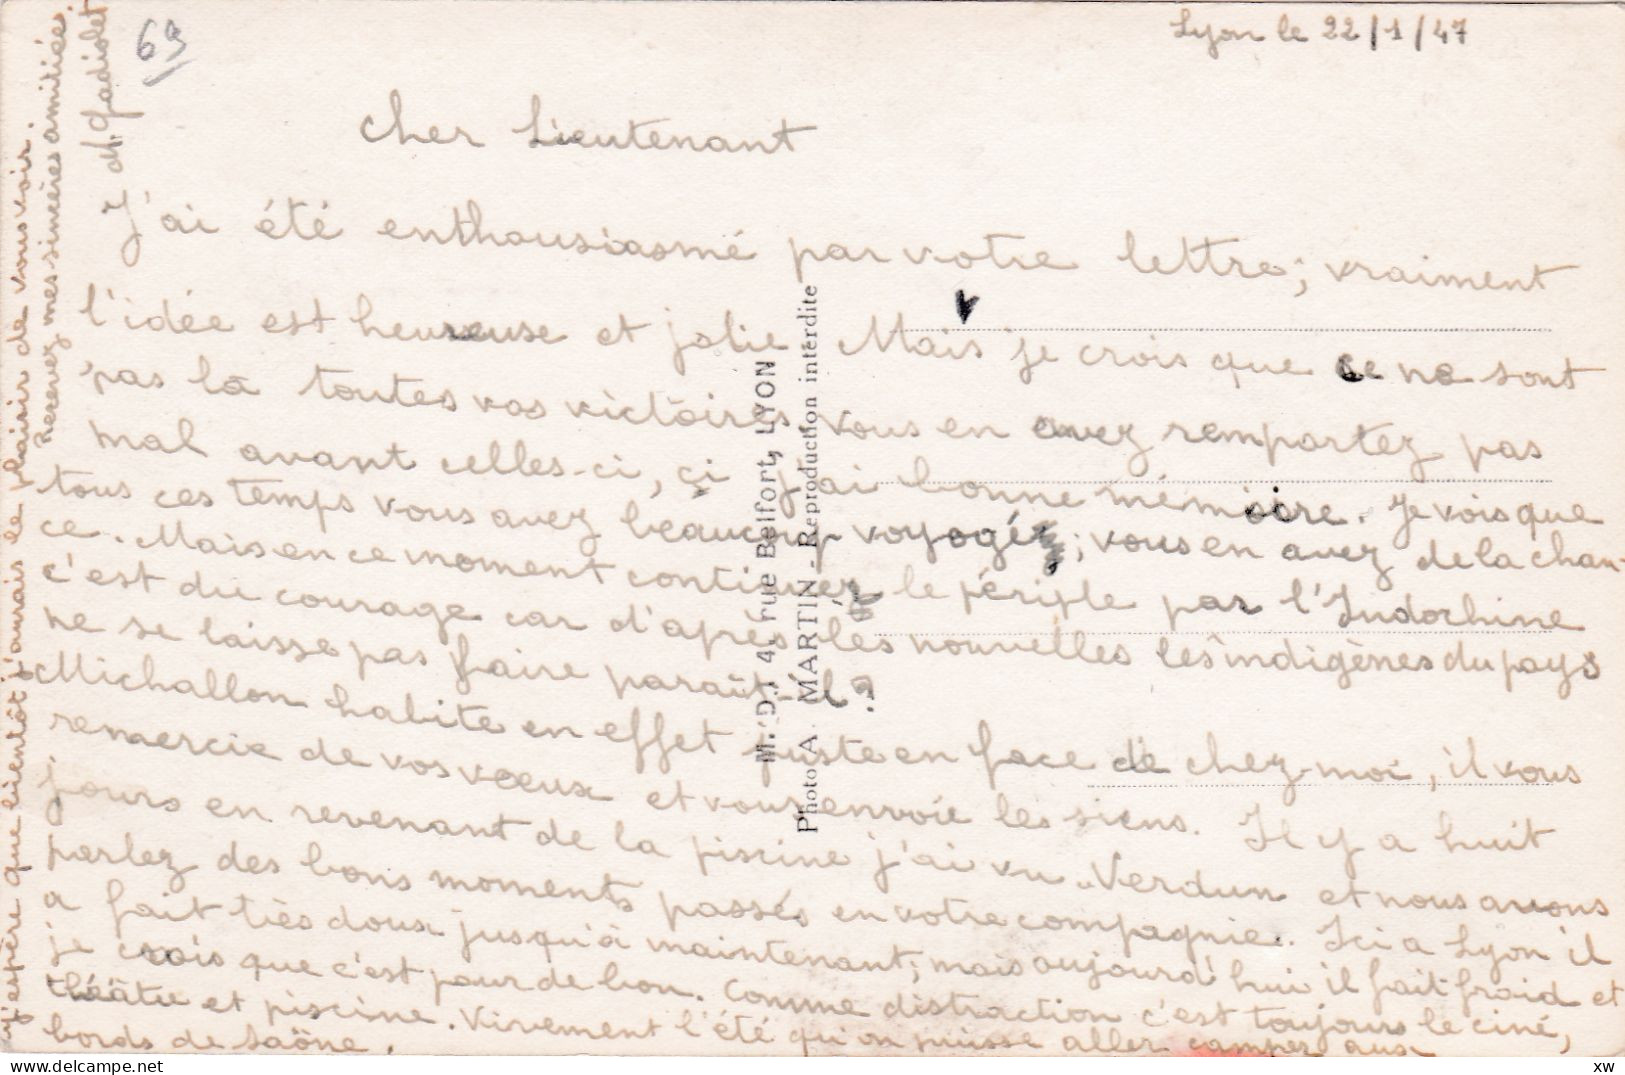 Lyon le 22/1/47
69
Cher Lieutenant
J'ai été enthousiasmé par votre lettre; vraiment
l'idée est heureuse et jolie Mais je crois que ce ne sont
pas là toutes vos victoires vous en avez remportez pas
mal avant celles-ci, çi j'ai bonne mémoire. Je vois que
tous ces temps vous avez beaucoup voyagé; vous en avez de la chan-
ce. Mais en ce moment continuez le périple par l'Indochine
c'est du courage car d'après les nouvelles les indigènes du pays
ne se laisse pas faire paraît-il?
Michallon habite en effet juste en face de chez-moi, il vous
remercie de vos vœux et vous envoie les siens. Il y a huit
jours en revenant de la piscine j'ai vu Verdun et nous avons
parlez des bons moments passés en votre compagnie. Ici a Lyon il
a fait très doux jusqu'à maintenant; mais aujourd'hui il fait froid et
je crois que c'est pour de bon. Comme distraction c'est toujours le ciné,
théâtre et piscine. Vivement l'été qu'on puisse aller camper aux
bords de Saône.
J'espère que bientôt j'aurais le plaisir de vous voir.
Recevez mes sincères amitiées.
M. D. 4, rue Belfort, LYON
Photo A. MARTIN - Reproduction interdite
https://www.delcampe.net
xw